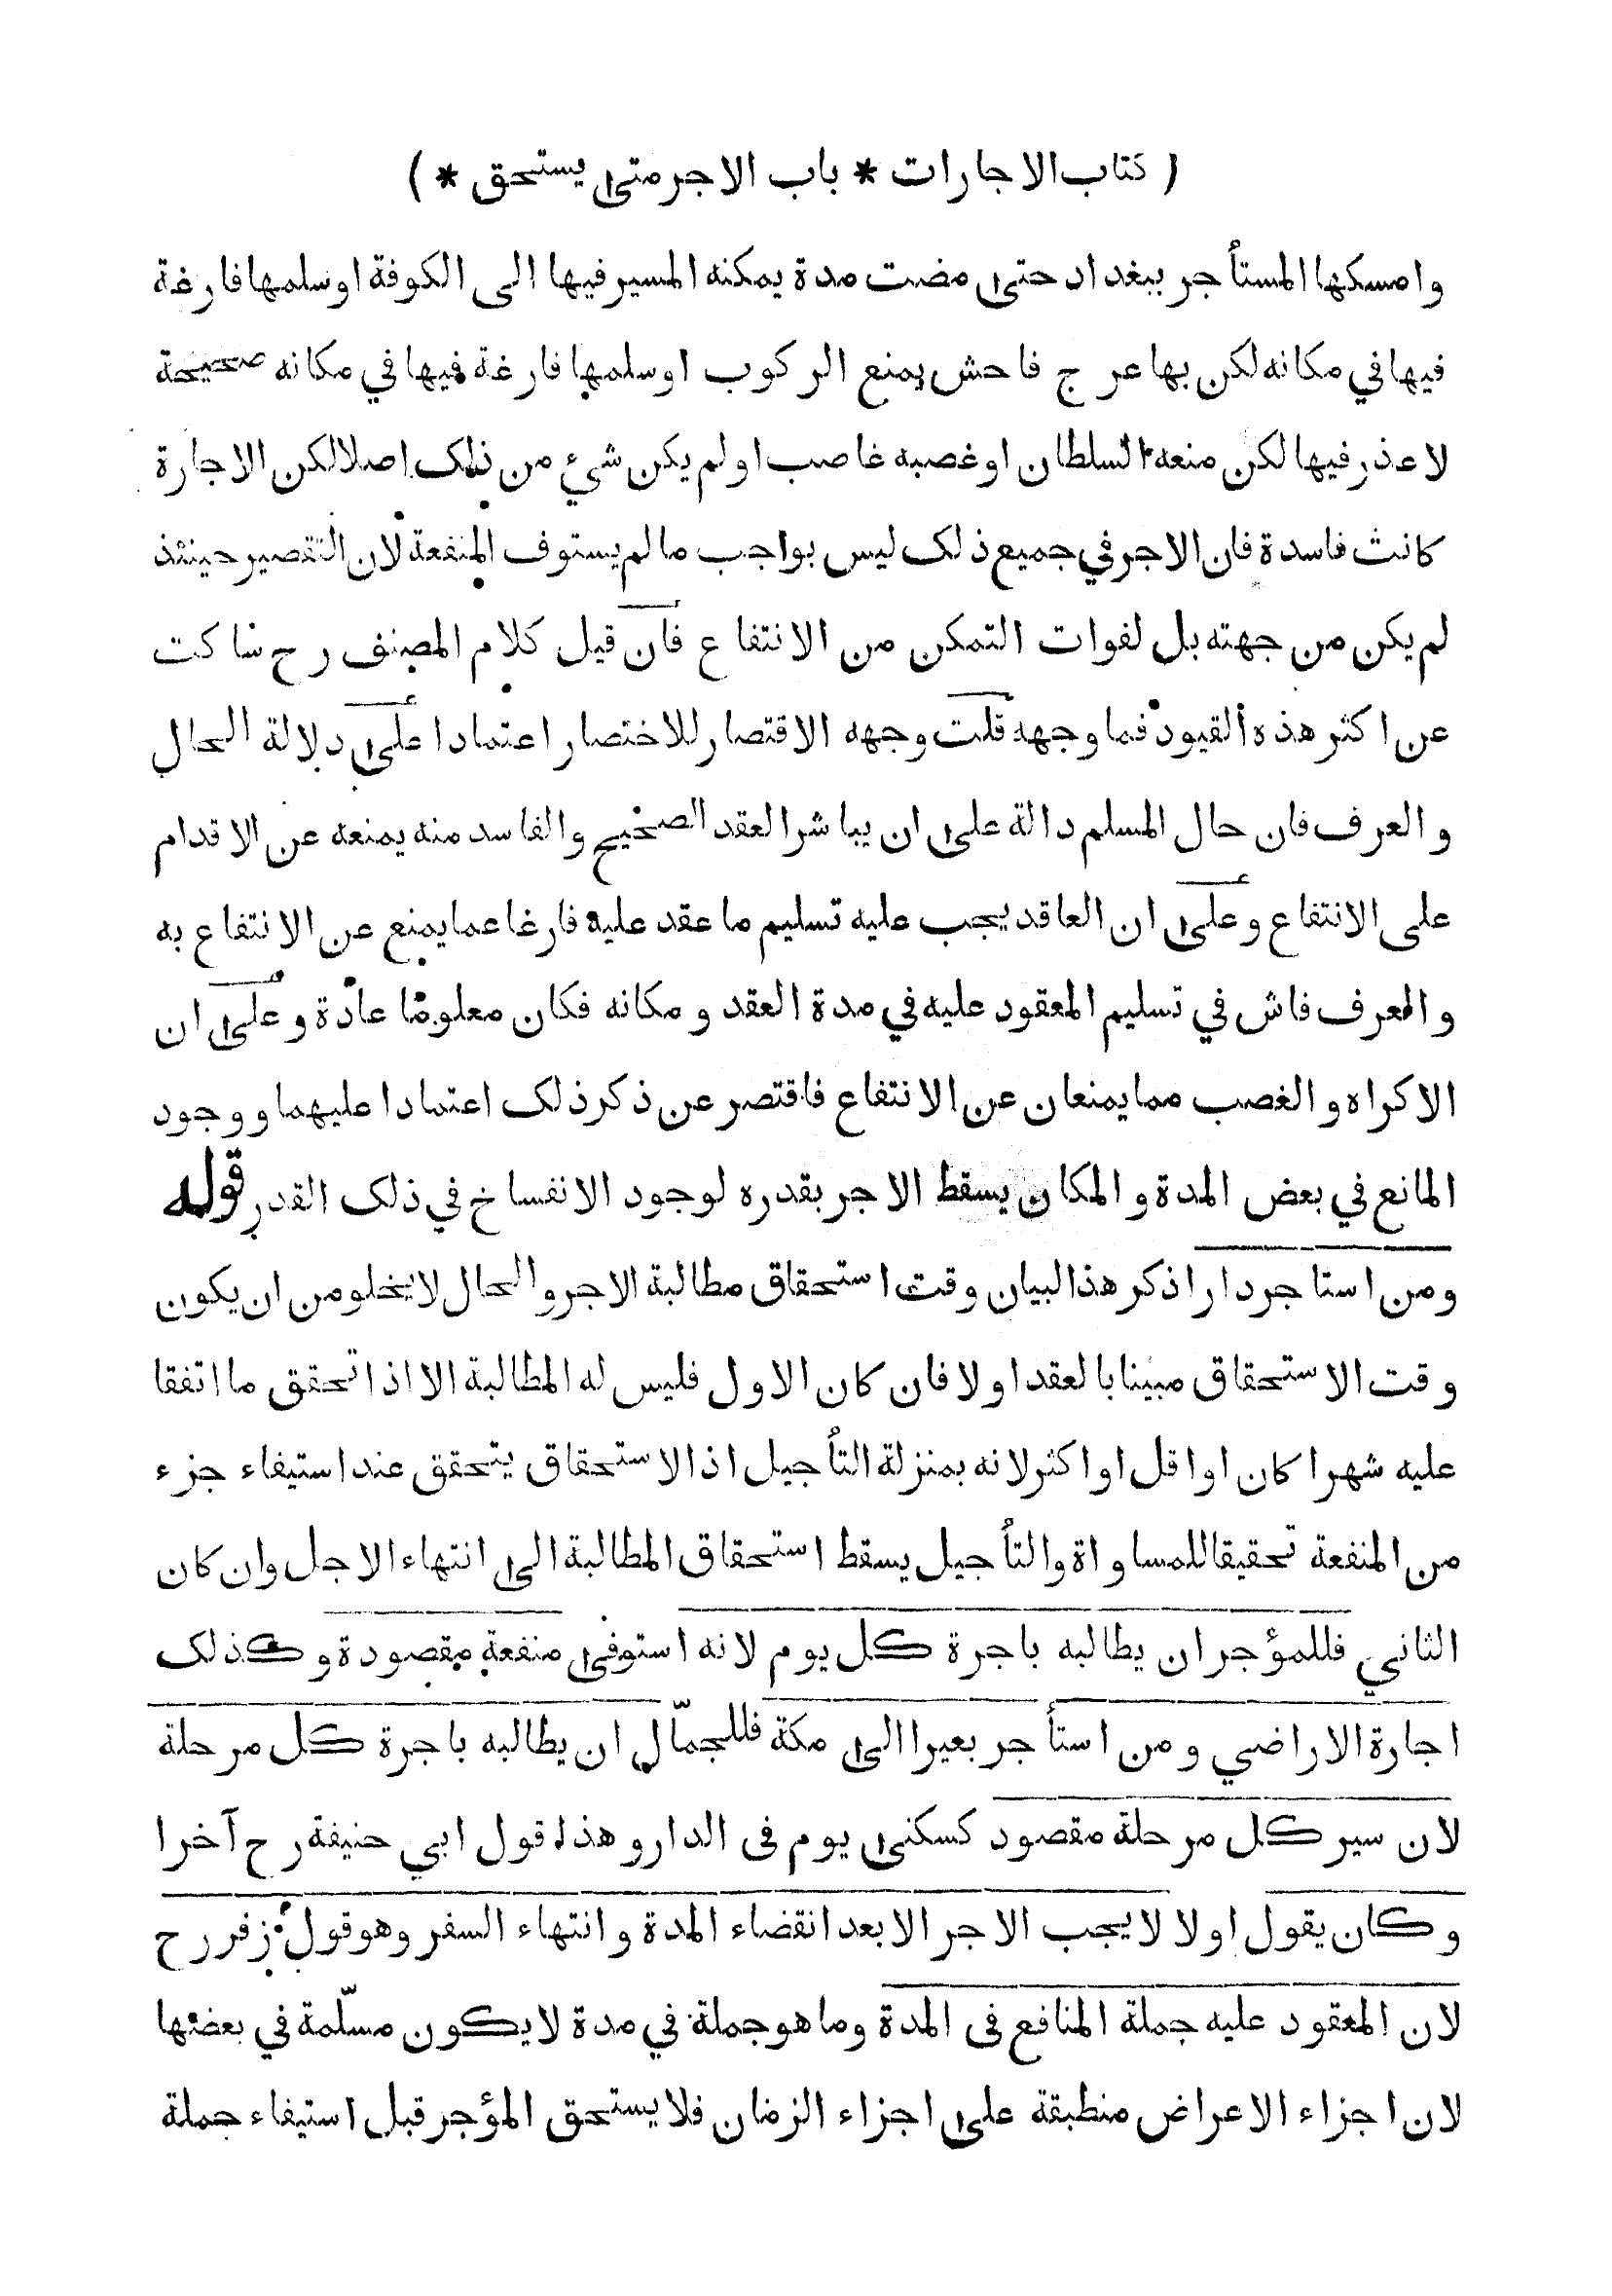 ( كتاب الاجارات * باب الاجر متى يستحق * )
وامسكها المستأجر ببغداد حتى مضت مدة يمكنه المسير فيها الى الكوفة اوسلمها فارغة
فيها في مكانه لكن بها عرج فاحش يمنع الركوب اوسلمها فارغة فيها في مكانه صحيحة
لاعذر فيها لكن منعه السلطان اوغصبه غاصب اولم يكن شيء من ذلك اصلا لكن الاجارة
كانت فاسدة فان الاجر في جميع ذلك ليس بواجب مالم يستوف المنفعة لان التقصير حينئذ
لم يكن من جهته بل لفوات التمكن من الانتفاع فان قيل كلام المصنف رح ساكت
عن اكثر هذه القيود فما وجهه قلت وجهه الاقتصار للاختصار اعتمادا على دلالة الحال
والعرف فان حال المسلم دالة على ان يباشر العقد الصحيح والفاسد منه يمنعه عن الاقدام
على الانتفاع وعلى ان العاقد يجب عليه تسليم ما عقد عليه فارغا عما يمنع عن الانتفاع به
والعرف فاش في تسليم المعقود عليه في مدة العقد ومكانه فكان معلوما عادة وعلى ان
الاكراه والغصب مما يمنعان عن الانتفاع فاقتصر عن ذكر ذلك اعتمادا عليهما ووجود
المانع في بعض المدة والمكان يسقط الاجر بقدره لوجود الانفساخ في ذلك القدر قوله
ومن استاجر دارا ذكر هذا لبيان وقت استحقاق مطالبة الاجر والحال لا يخلو من ان يكون
وقت الاستحقاق مبينا بالعقد اولا فان كان الاول فليس له المطالبة الا اذا تحقق ما اتفقا
عليه شهرا كان او اقل او اكثر لانه بمنزلة التأجيل اذ الاستحقاق يتحقق عند استيفاء جزء
من المنفعة تحقيقا للمساواة والتأجيل يسقط استحقاق المطالبة الى انتهاء الاجل وان كان
الثاني فللمؤجر ان يطالبه باجرة كل يوم لانه استوفى منفعة مقصودة وكذلك
اجارة الاراضي ومن استأجر بعيرا الى مكة فللجمّال ان يطالبه باجرة كل مرحلة
لان سير كل مرحلة مقصود كسكنى يوم فى الدار وهذا قول ابي حنيفة رح آخرا
وكان يقول اولا لا يجب الاجر الا بعد انقضاء المدة وانتهاء السفر وهو قول زفر رح
لان المعقود عليه جملة المنافع فى المدة وما هو جملة في مدة لا يكون مسلّمة في بعضها
لان اجزاء الاعراض منطبقة على اجزاء الزمان فلا يستحق المؤجر قبل استيفاء جملة